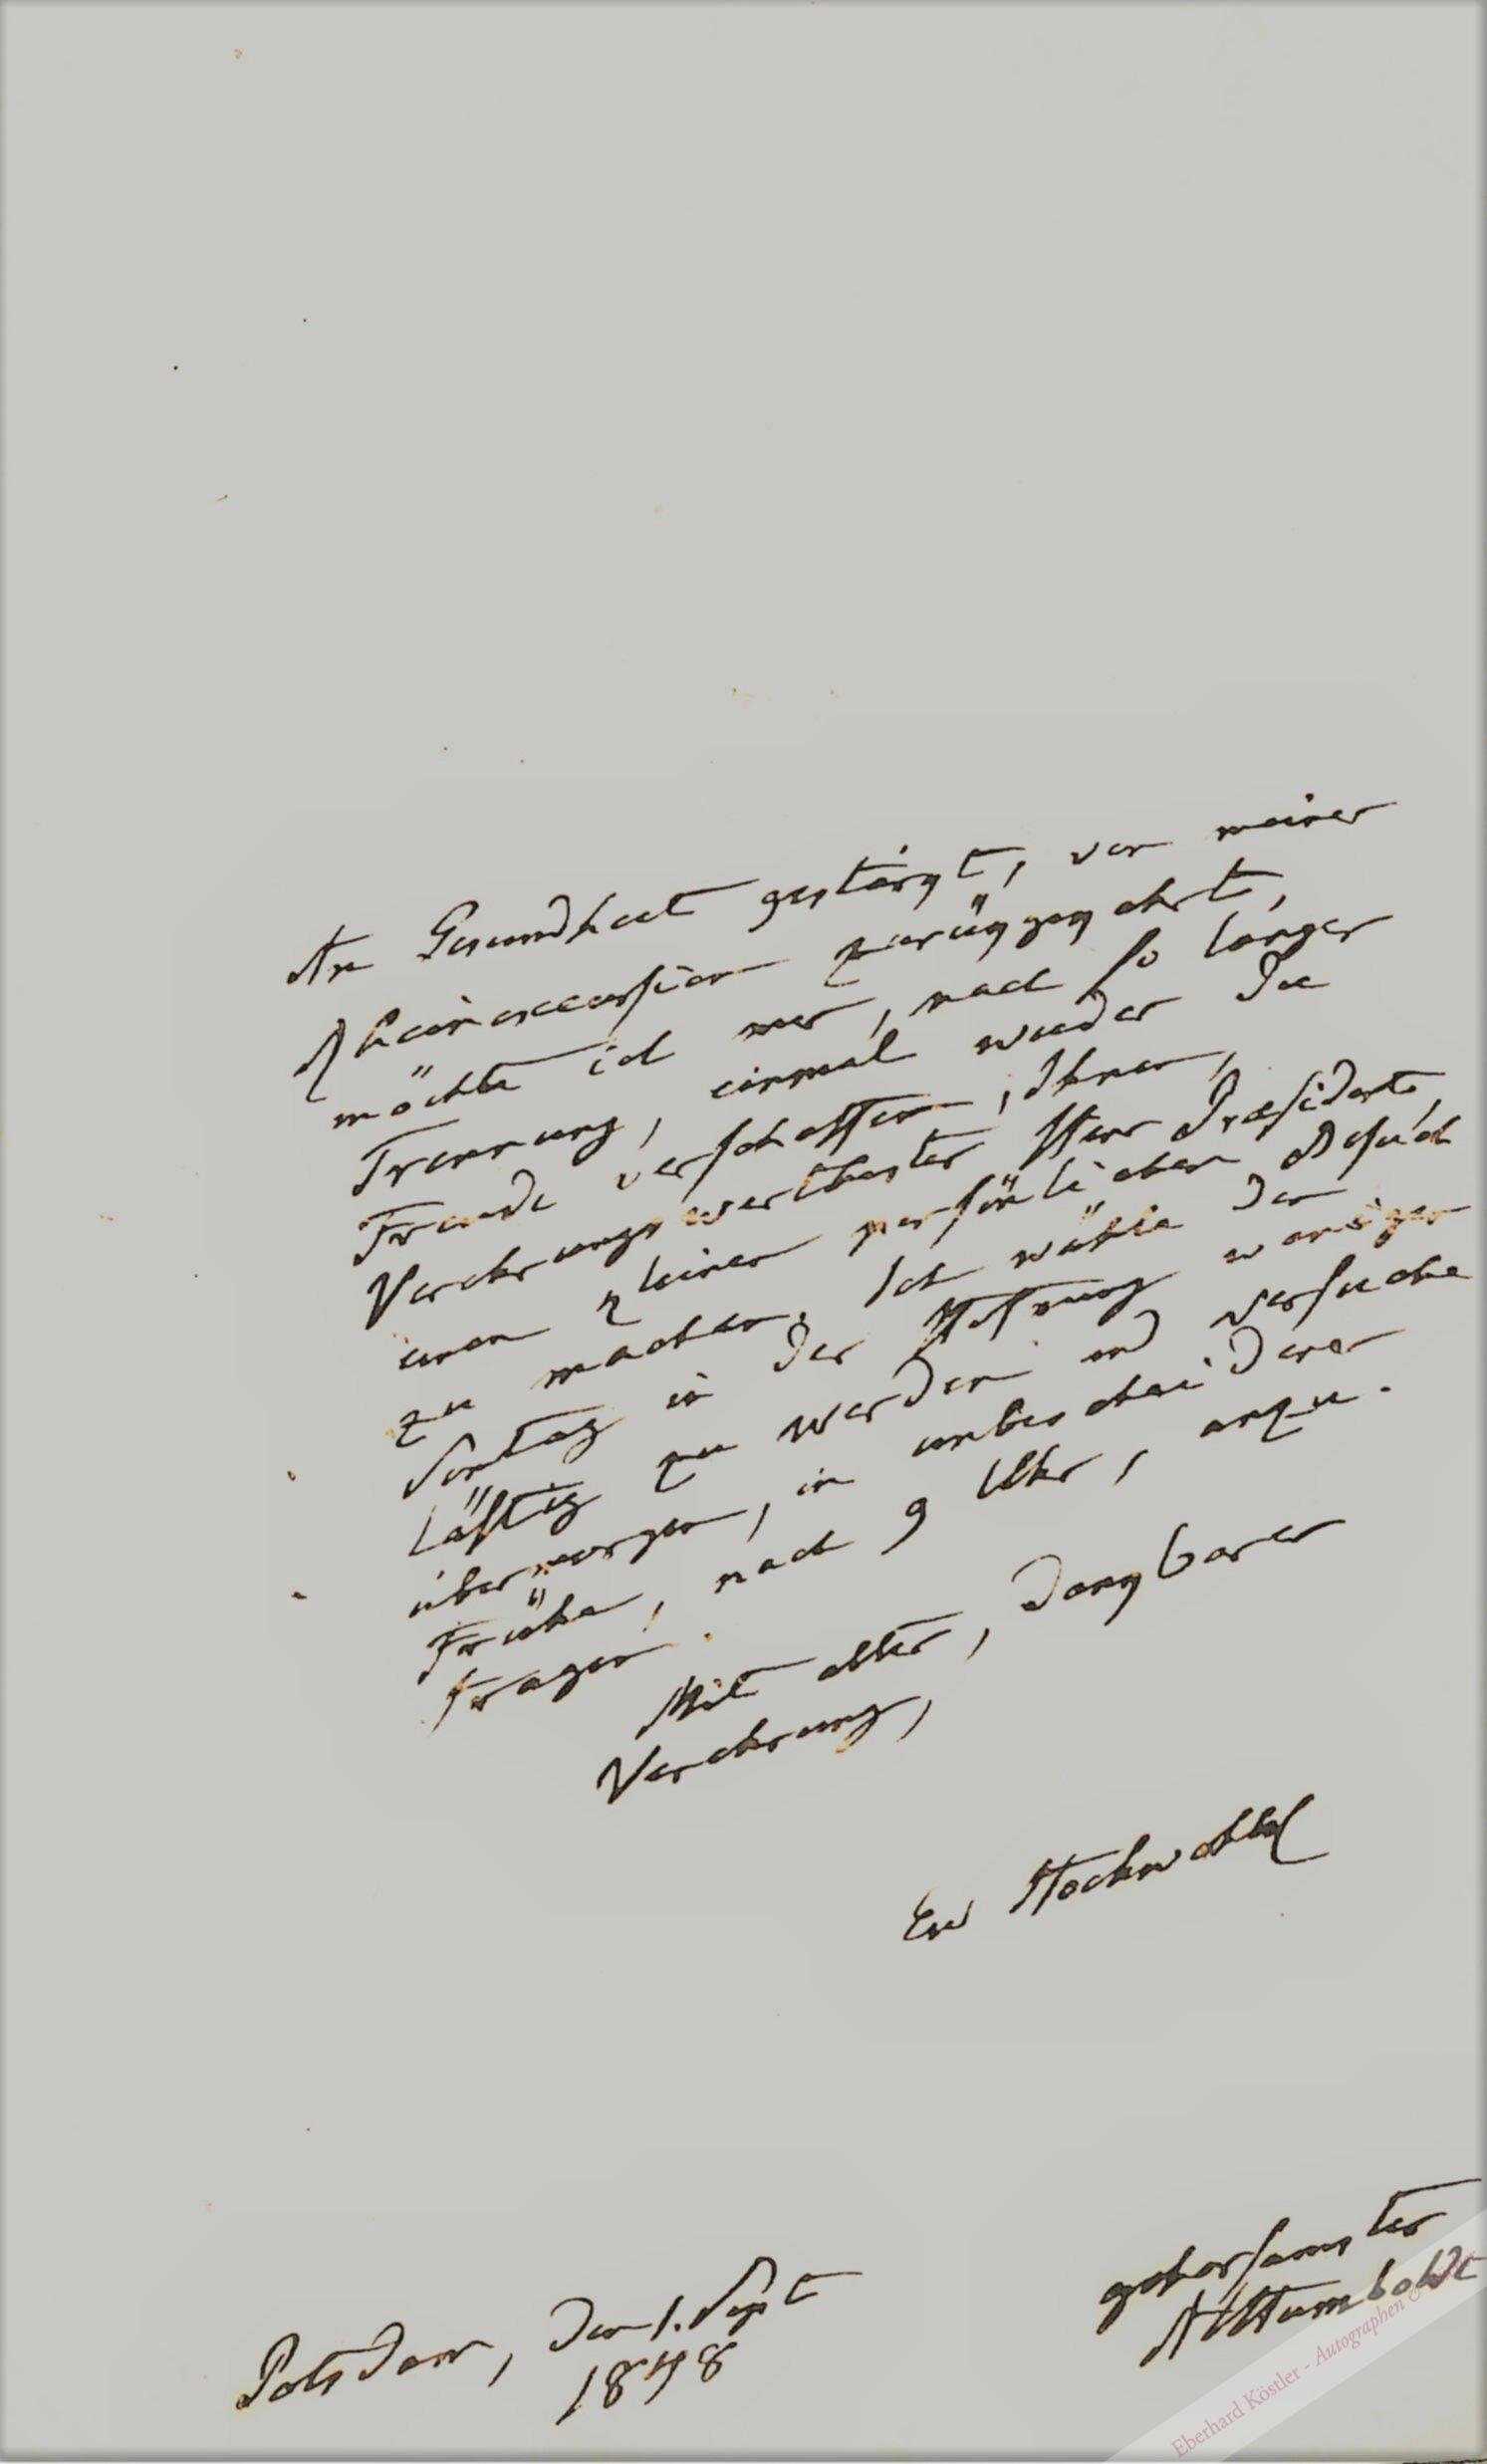 An Gesundheit gestärkt, von meiner
Rheinexcursion zurükgekehrt,
möchte ich mir, nach so langer
Trennung, einmal wieder die
Freude verschaffen, Ihnen,
Verehrungswerthester Herr Präsident,
einen kleinen persönlichen Besuch
zu machen. Ich wähle den
Sontag in der Hofnung weniger
lästig zu werden und versuche
übermorgen, in unbescheidener
Frühe, nach 9 Uhr, anzu-
fragen.
Mit alter, dankbarer
Verehrung,
Ew Hochwohl
gehorsamster
AvHumboldt
Potsdam, den 1. Sept
1848
Eberhard Köstler - Autographen &